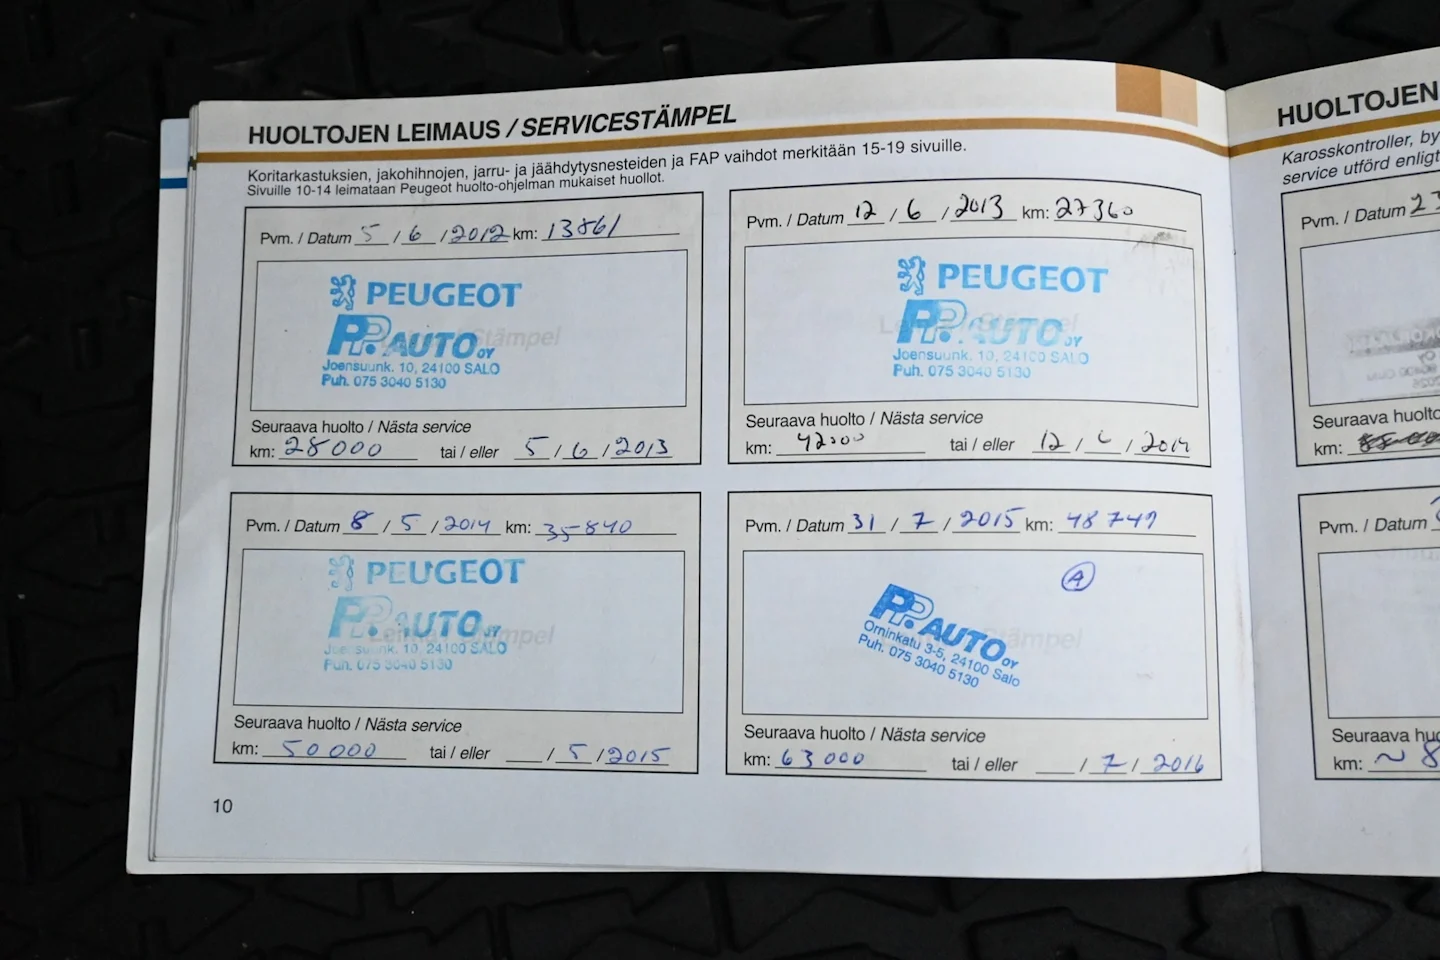 HUOLTOJEN LEIMAUS / SERVICESTÄMPEL
Koritarkastuksien, jakohihnojen, jarru- ja jäähdytysnesteiden ja FAP vaihdot merkitään 15-19 sivuille.
Sivuille 10-14 leimataan Peugeot huolto-ohjelman mukaiset huollot.
Pvm. / Datum 5 / 6 / 2012 km: 13861
PEUGEOT
PP. AUTO OY
Joensuunk. 10, 24100 SALO
Puh. 075 3040 5130
Seuraava huolto / Nästa service
km: 28000 tai / eller 5 / 6 / 2013
Pvm. / Datum 12 / 6 / 2013 km: 27360
PEUGEOT
PP. AUTO OY
Joensuunk. 10, 24100 SALO
Puh. 075 3040 5130
Seuraava huolto / Nästa service
km: 42000 tai / eller 12 / 6 / 2014
Pvm. / Datum 8 / 5 / 2014 km: 35840
PEUGEOT
PP. AUTO OY
Joensuunk. 10, 24100 SALO
Puh. 075 3040 5130
Leima / Stämpel
Seuraava huolto / Nästa service
km: 50000 tai / eller / 5 / 2015
Pvm. / Datum 31 / 7 / 2015 km: 48749
A
PP. AUTO OY
Orninkatu 3-5, 24100 Salo
Puh. 075 3040 5130
Stämpel
Seuraava huolto / Nästa service
km: 63000 tai / eller / 7 / 2016
10
HUOLTOJEN
Karosskontroller, by
service utförd enligt
Pvm. / Datum
Seuraava huolto
km:
Pvm. / Datum
Seuraava huo
km: ~ 8